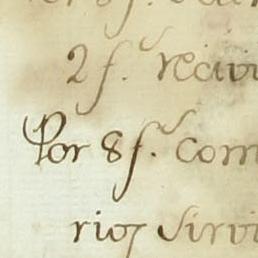 2 f. recivi
Por 8 f. com
rios sirvi